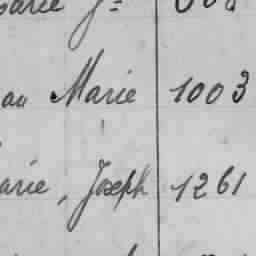 au Marie 1003
arie, Joseph 1261